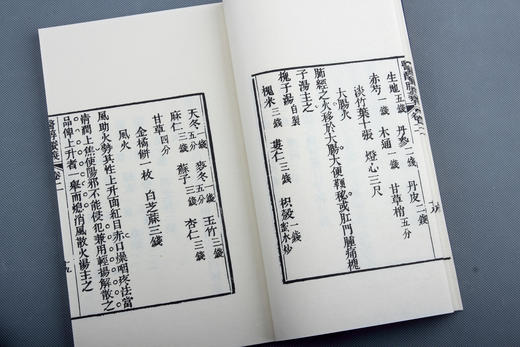 生地五錢 丹參二錢 丹皮二錢
赤芍一錢 木通一錢 甘草梢五分
淡竹葉十張 燈心三尺
大腸火
肺經之火移於大腸大便硬秘或肛門腫痛槐
子湯主之
槐子湯自製
槐米三錢 蔞仁三錢 枳殼一錢蜜水炒
天冬一錢五分 麥冬一錢五分 玉竹三錢
麻仁三錢 蘇子三錢 杏仁三錢
甘草四分
金橘餅一枚 白芝麻三錢
風火
風助火勢其性上升面紅目赤口燥咽疼法當
清潤上焦使陽邪不能侵犯兼用輕揚解散之
品俾上升者 而熄消風散火湯主之
卷二
十九